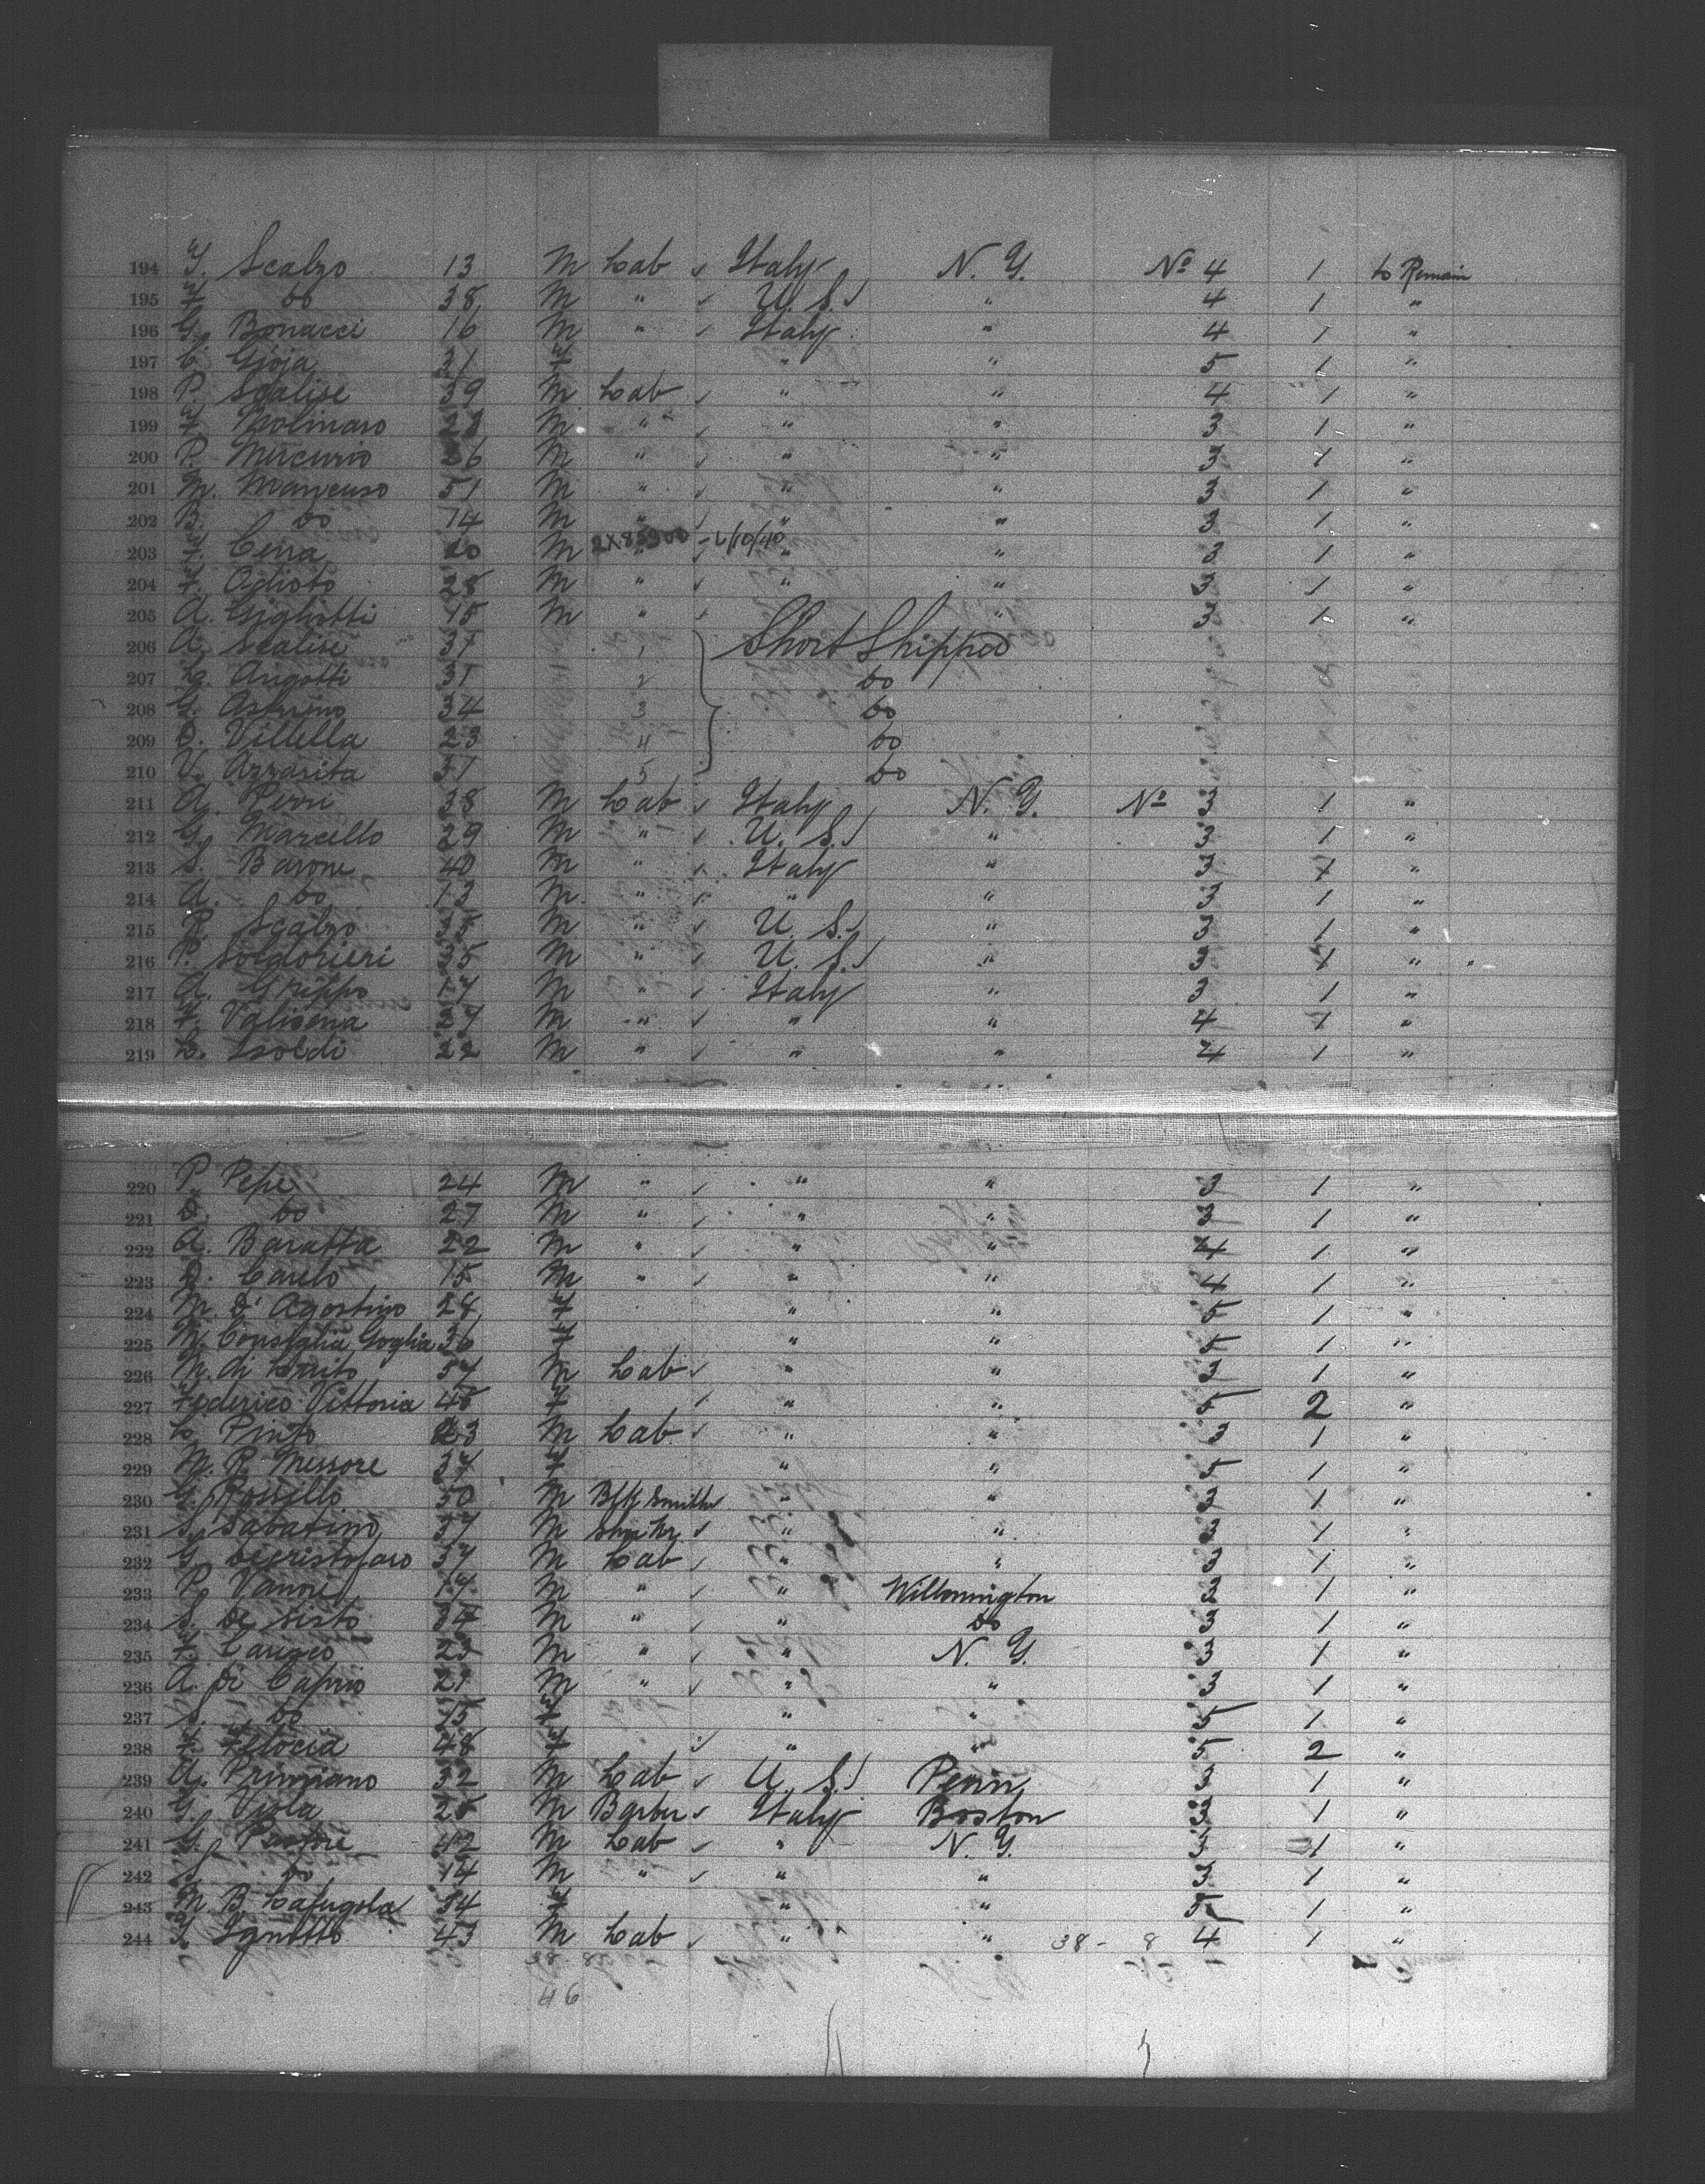 194 F. Scalzo 13 M Lab ✓ Italy N. Y. No 4 1 to Remain
195 F. do 38 M " ✓ U. S. ✓ " 4 1 "
196 G. Bonacci 16 M " ✓ Italy " 4 1 "
197 C. Gioja 31 F " " 5 1 "
198 P. Scalise 39 M Lab ✓ " " 4 1 "
199 F. Molinaro M " ✓ " " 3 1 "
200 P. Mercurio 26 M " ✓ " " 3 1 "
201 M. Mancuso 51 M " ✓ " " 3 1 "
202 B. do 14 M " ✓ " " 3 1 "
203 F. Cerra 20 M 2X85900 - 6/10/40 " " 3 1 "
204 F. 28 M " ✓ " " 3 1 "
205 A. Gigliotti 15 M " ✓ " 3 1 "
206 A. Scalise 37 1 Short Shipped
207 Angotti 31 2 do
208 G. 34 3 do
209 D. Villella 23 4 do
210 V. Azzarita 31 5 do
211 A. Perri 38 M Lab ✓ Italy N. Y. No 3 1 "
212 G. Marcello 29 M " ✓ U. S. ✓ " 3 1 "
213 S. Barone 40 M " ✓ Italy " 3 1 "
214 A. do 13 M " ✓ " " 3 1 "
215 Scalzo 35 M " ✓ U. S. ✓ " 3 1 "
216 P. Soldorieri 35 M " ✓ U. S. ✓ " 3 1 "
217 A. Grippo 17 M " ✓ Italy " 3 1 "
218 F. 17 M " ✓ " " 4 1 "
219 Isoldi 22 M " ✓ " " 4 1 "
220 P. Pepe 24 M " ✓ " " 3 1 "
221 D. do 27 M " ✓ " " 3 1 "
222 A. Baratta 22 M " ✓ " " 4 1 "
223 D. 15 M " ✓ " " 4 1 "
224 M. D'Agostino 24 F " " 5 1 "
225 M. Consiglia Goglia 36 F " " 5 1 "
226 M. di 57 M Lab ✓ " " 3 1 "
227 Federico Vittoria 45 F ✓ " " 5 2 "
228 Pinto 23 M Lab ✓ " " 3 1 "
229 M. R. Messore 37 F " " 5 1 "
230 G. Rossillo 50 M Blk Smith " " 3 1 "
231 S. Sabatino 37 M ✓ " " 3 1 "
232 G. Decristofaro 37 M Lab ✓ " " 3 1 "
233 P. Vanore 17 M " ✓ " Willmington 3 1 "
234 S. De Sisto 34 M " ✓ " do 3 1 "
235 F. 23 M " ✓ " N. Y. 3 1 "
236 A. Di Caprio 21 M " ✓ " " 3 1 "
237 S. do 15 F " " 5 1 "
238 F. 48 F ✓ " " 5 2 "
239 A. 32 M Lab ✓ U. S. ✓ Penn 3 1 "
240 G. Viola 25 M Barber ✓ Italy Boston 3 1 "
241 G. Pastore 42 M Lab ✓ " N. Y. 3 1 "
242 S. do 14 M " ✓ " " 3 1 "
243 M. B. Lafugola 34 F " " 5 1 "
244 Ignotto 43 M Lab ✓ " " 38 - 8 4 1 "
38 8
46